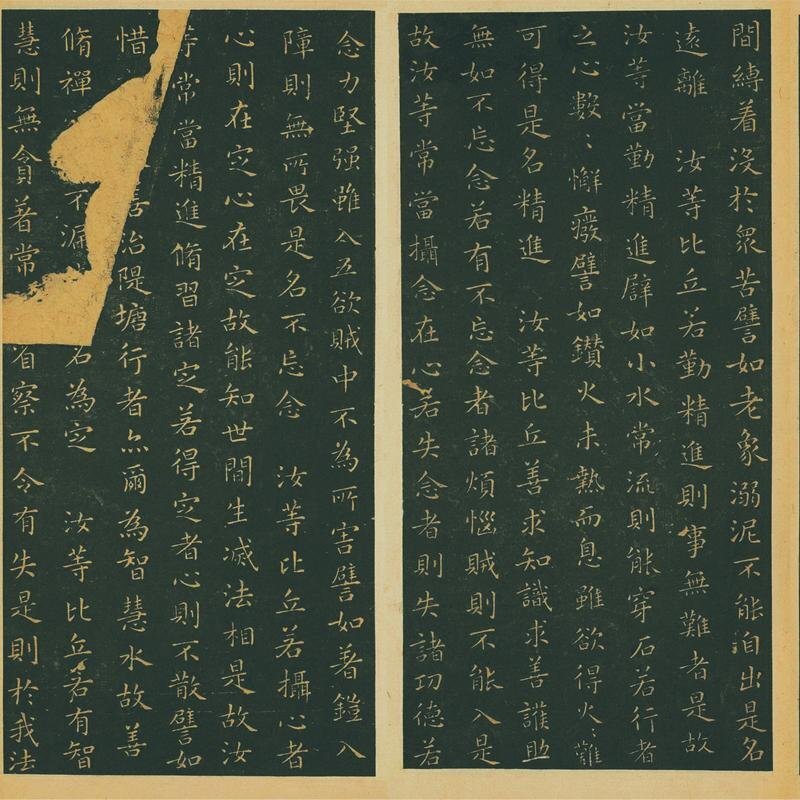 間縛着沒於衆苦譬如老象溺泥不能自出是名
遠離 汝等比丘若勤精進則事無難者是故
汝等當勤精進譬如小水常流則能穿石若行者
之心數〻懈癈譬如鑚火未熱而息雖欲得火〻難
可得是名精進 汝等比丘善求知識求善護助
無如不忘念若有不忘念者諸煩惱賊則不能入是
故汝等常當攝念在心若失念者則失諸功德若
念力堅强雖入五欲賊中不為所害譬如著鎧入
障則無所畏是名不忘念 汝等比丘若攝心者
心則在定心在定故能知世間生滅法相是故汝
等常當精進脩習諸定若得定者心則不散譬如
惜 善治隄塘行者亦爾為智慧水故善
脩禪 不漏 名為定 汝等比丘若有智
慧則無貪著常 省察不令有失是則於我法